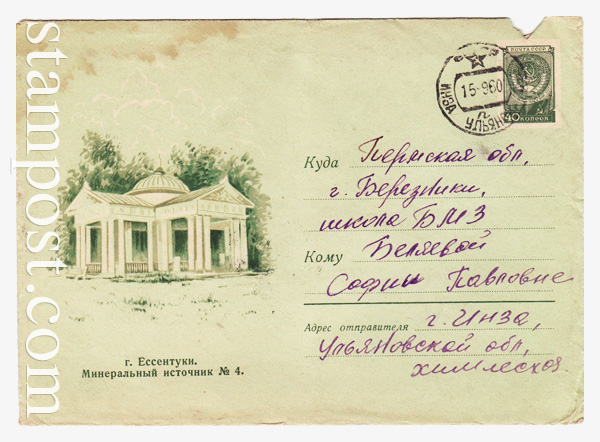 ПОЧТА СССР
40 КОПЕЕК
ИНЗА
15-960
Куда Пермская обл.
г. Березники,
школа БМЗ
Кому Беляевой
Софии Павловне
Адрес отправителя г. Инза,
Ульяновской обл,
химлесхоз
г. Ессентуки.
Минеральный источник № 4.
stampost.com